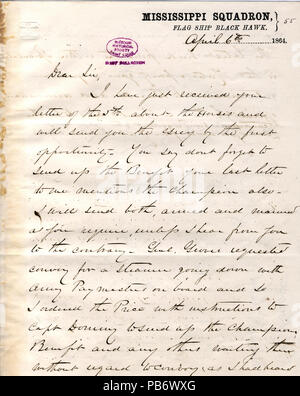 MISSISSIPPI SQUADRON,
FLAG SHIP BLACK HAWK.
55
April 6th 1864.
MISSOURI
HISTORICAL
SOCIETY
Dear Sir,
I have just received your
letter of the 5th about the Horses and
will send you the by the first
opportunity. You say dont forget to
send up the Benefit. Your last letter
to me mentioned the Champion also
I will send both, armed and manned
as you require unless I hear from you
to the contrary. Genl. requested
convoy for a Steamer going down with
Army Paymasters on board and so
I ordered the Price with instructions to
Capt to send up the Champion,
Benefit and any others waiting there
without regard to convoy; as I had heard
alamy
Image ID: PB6WXG
www.alamy.com